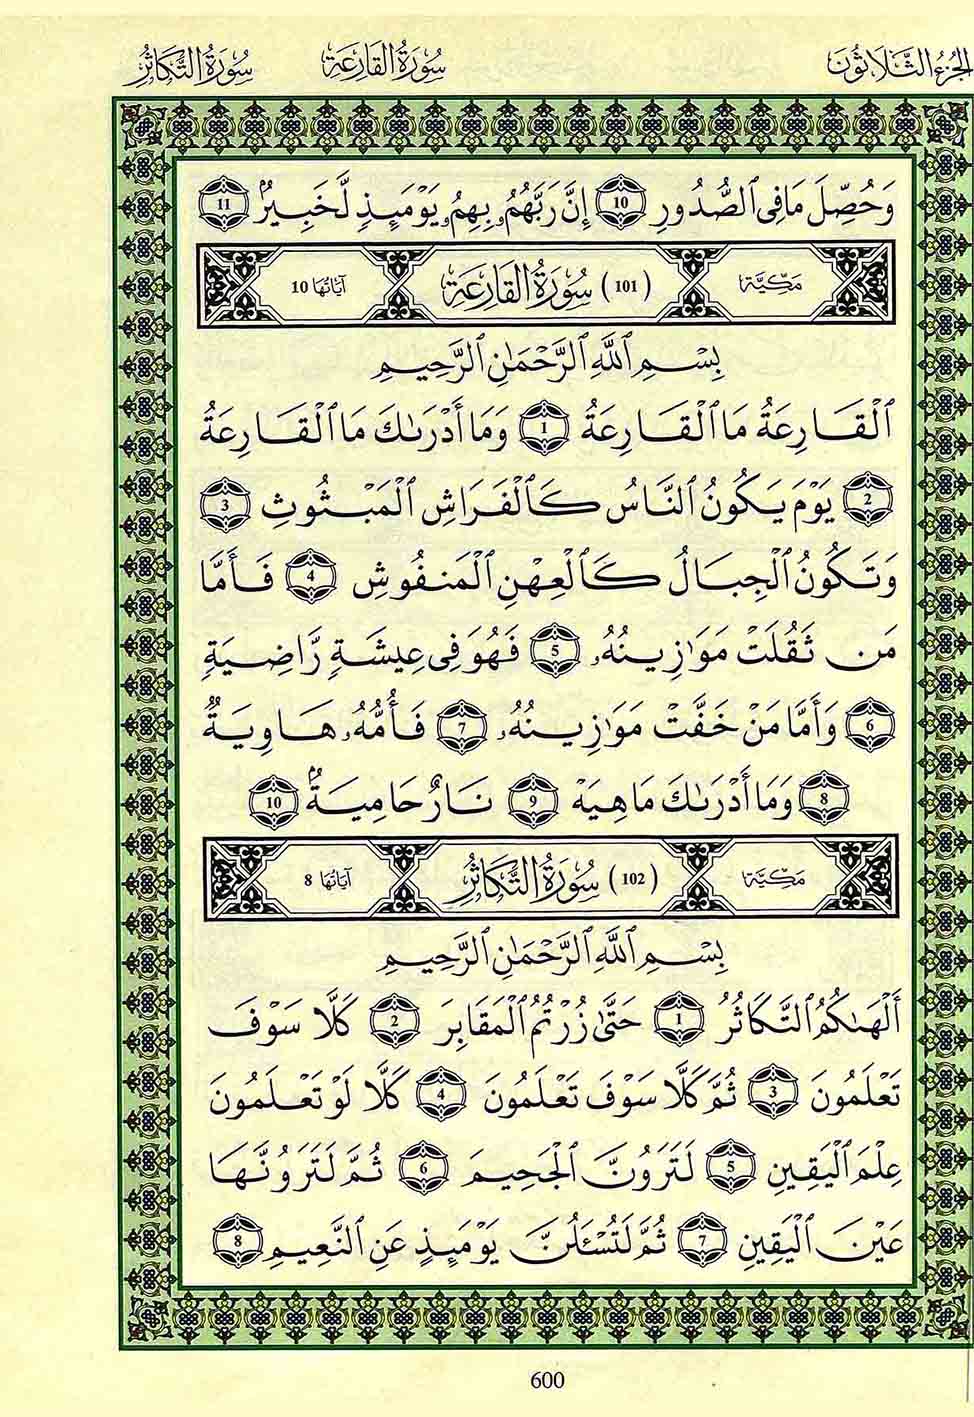 الجزء الثلاثون سورة القارعة سورة التكاثر
وَحُصِّلَ مَا فِى ٱلصُّدُورِ 10 إِنَّ رَبَّهُم بِهِمْ يَوْمَئِذٍ لَّخَبِيرٌۢ 11
مَكِّيَّة (101) سُورَةُ القَارِعَة آيَاتُهَا 10
بِسْمِ ٱللَّهِ ٱلرَّحْمَٰنِ ٱلرَّحِيمِ
ٱلْقَارِعَةُ مَا ٱلْقَارِعَةُ 1 وَمَا أَدْرَىٰكَ مَا ٱلْقَارِعَةُ
2 يَوْمَ يَكُونُ ٱلنَّاسُ كَٱلْفَرَاشِ ٱلْمَبْثُوثِ 3
وَتَكُونُ ٱلْجِبَالُ كَٱلْعِهْنِ ٱلْمَنفُوشِ 4 فَأَمَّا
مَن ثَقُلَتْ مَوَٰزِينُهُۥ 5 فَهُوَ فِى عِيشَةٍ رَّاضِيَةٍ
6 وَأَمَّا مَنْ خَفَّتْ مَوَٰزِينُهُۥ 7 فَأُمُّهُۥ هَاوِيَةٌ
8 وَمَا أَدْرَىٰكَ مَا هِيَهْ 9 نَارٌ حَامِيَةٌۢ 10
مَكِّيَّة (102) سُورَةُ التَّكَاثُر آيَاتُهَا 8
بِسْمِ ٱللَّهِ ٱلرَّحْمَٰنِ ٱلرَّحِيمِ
أَلْهَىٰكُمُ ٱلتَّكَاثُرُ 1 حَتَّىٰ زُرْتُمُ ٱلْمَقَابِرَ 2 كَلَّا سَوْفَ
تَعْلَمُونَ 3 ثُمَّ كَلَّا سَوْفَ تَعْلَمُونَ 4 كَلَّا لَوْ تَعْلَمُونَ
عِلْمَ ٱلْيَقِينِ 5 لَتَرَوُنَّ ٱلْجَحِيمَ 6 ثُمَّ لَتَرَوُنَّهَا
عَيْنَ ٱلْيَقِينِ 7 ثُمَّ لَتُسْـَٔلُنَّ يَوْمَئِذٍ عَنِ ٱلنَّعِيمِ 8
600